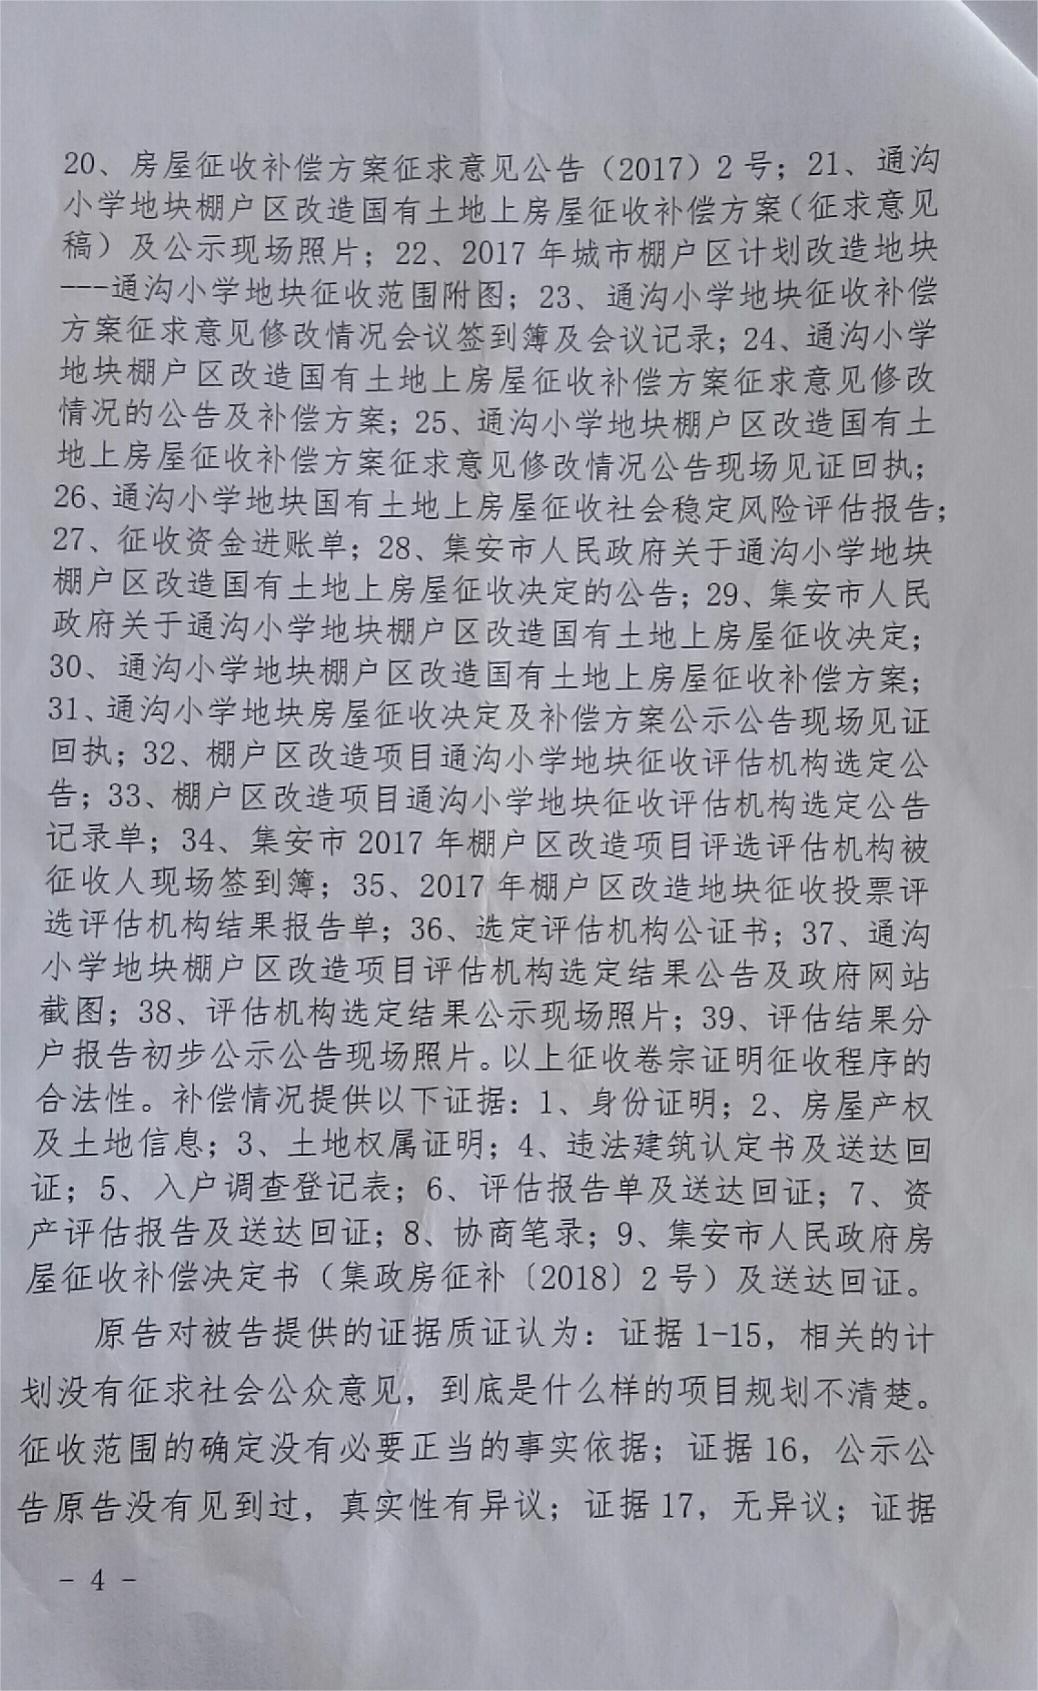 20、房屋征收补偿方案征求意见公告（2017）2号；21、通沟
小学地块棚户区改造国有土地上房屋征收补偿方案（征求意见
稿）及公示现场照片；22、2017年城市棚户区计划改造地块
---通沟小学地块征收范围附图；23、通沟小学地块征收补偿
方案征求意见修改情况会议签到簿及会议记录；24、通沟小学
地块棚户区改造国有土地上房屋征收补偿方案征求意见修改
情况的公告及补偿方案；25、通沟小学地块棚户区改造国有土
地上房屋征收补偿方案征求意见修改情况公告现场见证回执；
26、通沟小学地块国有土地上房屋征收社会稳定风险评估报告；
27、征收资金进账单；28、集安市人民政府关于通沟小学地块
棚户区改造国有土地上房屋征收决定的公告；29、集安市人民
政府关于通沟小学地块棚户区改造国有土地上房屋征收决定；
30、通沟小学地块棚户区改造国有土地上房屋征收补偿方案；
31、通沟小学地块房屋征收决定及补偿方案公示公告现场见证
回执；32、棚户区改造项目通沟小学地块征收评估机构选定公
告；33、棚户区改造项目通沟小学地块征收评估机构选定公告
记录单；34、集安市2017年棚户区改造项目评选评估机构被
征收人现场签到簿；35、2017年棚户区改造地块征收投票评
选评估机构结果报告单；36、选定评估机构公证书；37、通沟
小学地块棚户区改造项目评估机构选定结果公告及政府网站
截图；38、评估机构选定结果公示现场照片；39、评估结果分
户报告初步公示公告现场照片。以上征收卷宗证明征收程序的
合法性。补偿情况提供以下证据：1、身份证明；2、房屋产权
及土地信息；3、土地权属证明；4、违法建筑认定书及送达回
证；5、入户调查登记表；6、评估报告单及送达回证；7、资
产评估报告及送达回证；8、协商笔录；9、集安市人民政府房
屋征收补偿决定书（集政房征补〔2018〕2号）及送达回证。
原告对被告提供的证据质证认为：证据1-15，相关的计
划没有征求社会公众意见，到底是什么样的项目规划不清楚。
征收范围的确定没有必要正当的事实依据；证据16，公示公
告原告没有见到过，真实性有异议；证据17，无异议；证据
- 4 -